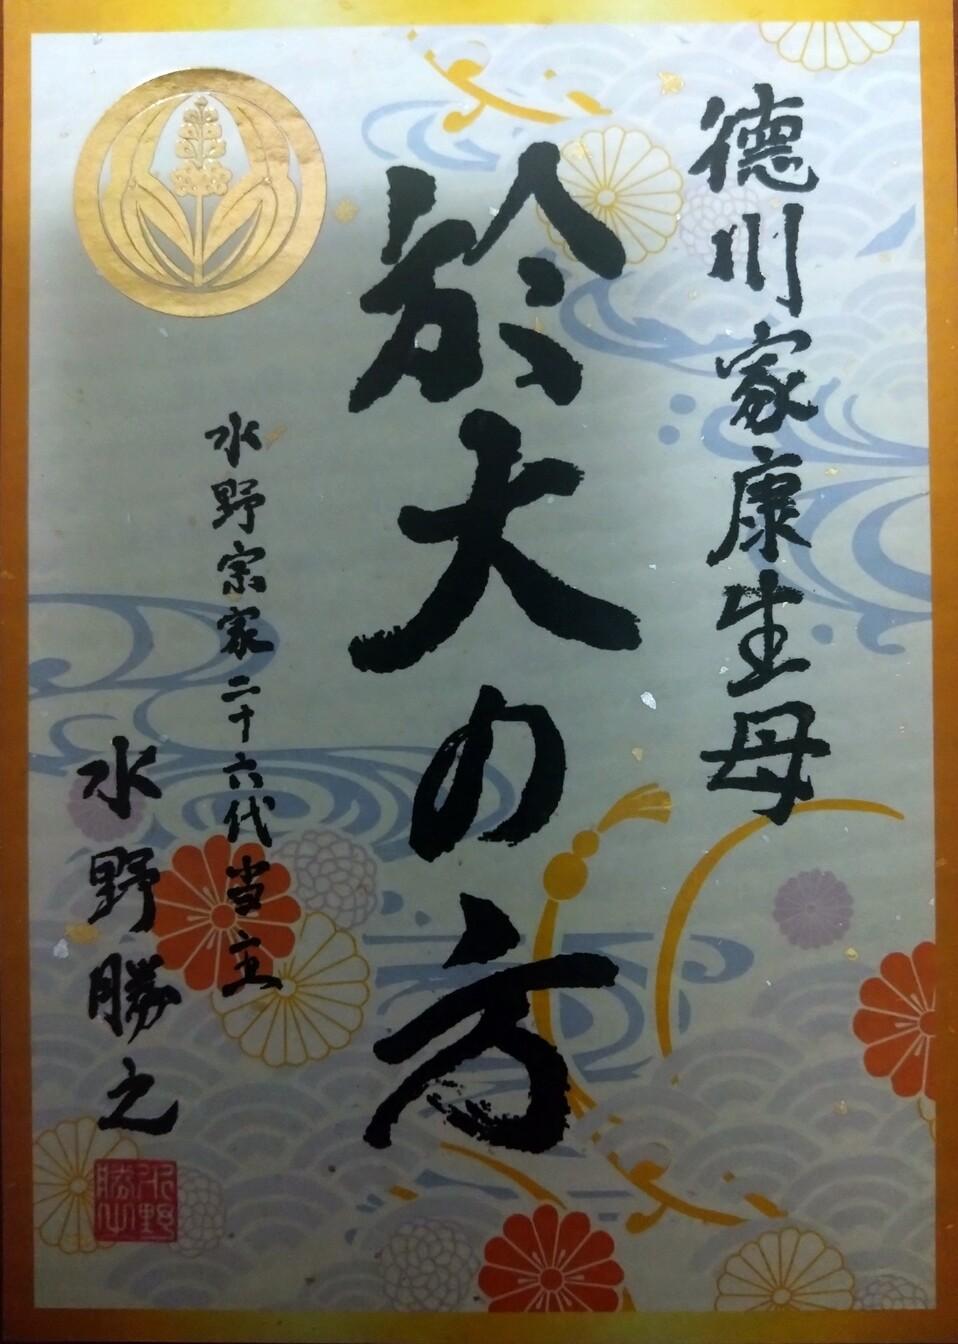 徳川家康生母
於大の方
水野宗家二十六代当主
水野勝之
水野
勝之